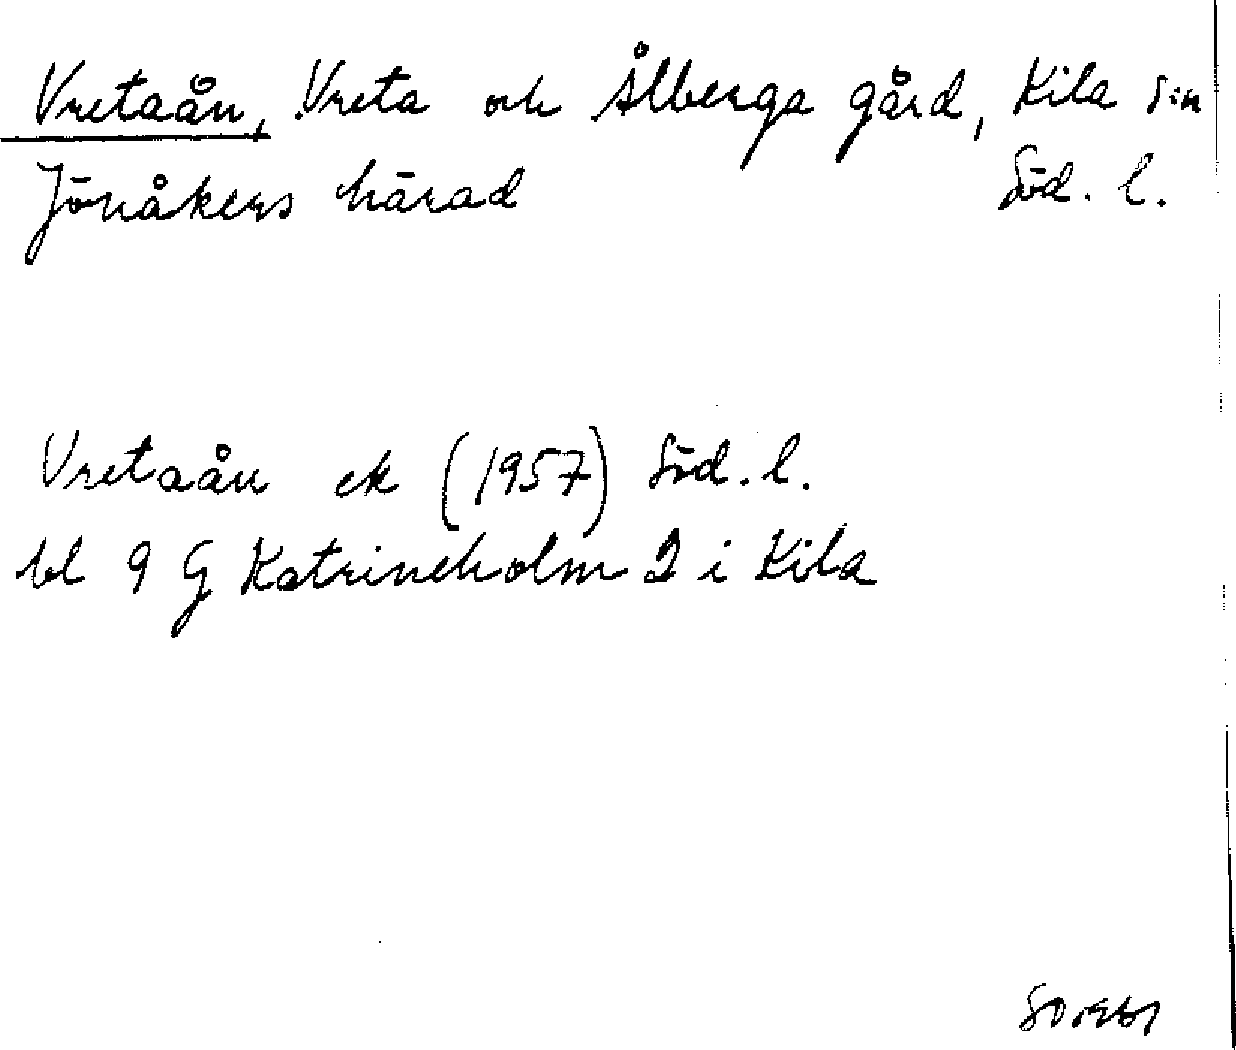 Vretaån, Vreta och Ålberga gård, Kila s:n
Jönåkers härad Söd. l.
Vretaån ek (1957) Söd. l.
bl 9 G Katrineholm 2 i Kila